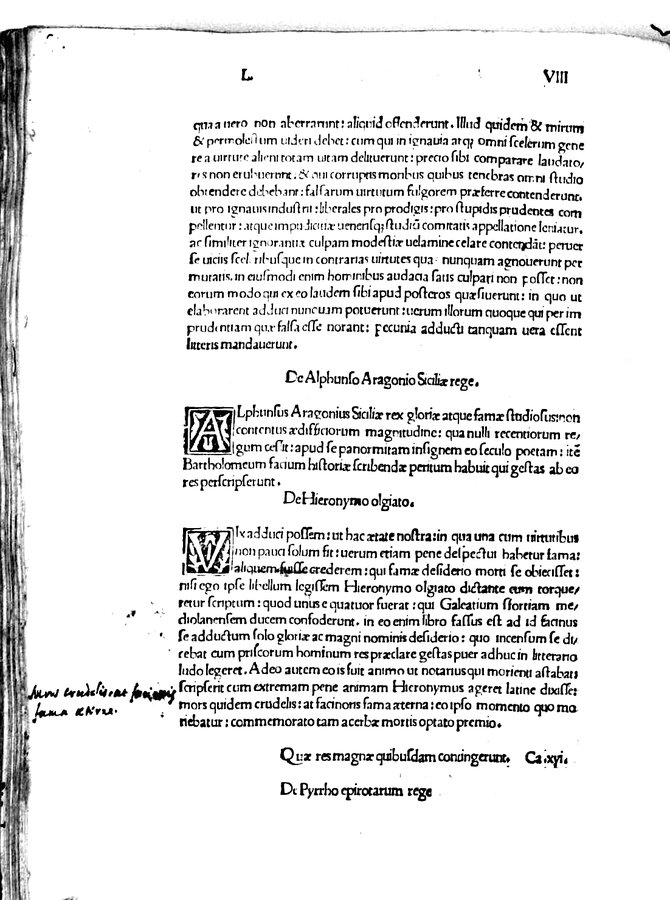 L. VIII
qua a uero non aberrarunt: aliquid offenderunt. Illud quidem & mirum
& permolestum uideri debet: cum qui in ignauia atq; omni scelerum gene
re a uirture alieni totam uitam delituerunt: precio sibi comparare laudato/
res non erubuerunt. & qui corruptis moribus quibus tenebras omni studio
obtendere debebant: falsarum uirtutum fulgorem præferre contenderunt.
ut pro ignauis industrii: liberales pro prodigis: pro stupidis prudentes com
pellentur: atque impudicitiæ uenensq; studiū comitatis appellatione leniatur.
ac similiter ignorantiæ culpam modestiæ uelamine celare contendāt: peruer
se uitiis sceleribusque in contrarias uirtutes quas nunquam agnouerunt per
mutatis. in eiusmodi enim hominibus audacia satis culpari non posset: non
eorum modo qui ex eo laudem sibi apud posteros quæsiuerunt: in quo ut
elaborarent adduci nunquam potuerunt: uerum illorum quoque qui per im
prudentiam quæ falsa esse norant: pecunia adducti tanquam uera essent
litteris mandauerunt.
De Alphunso Aragonio Siciliæ rege.
ALphunsus Aragonius Siciliæ rex gloriæ atque famæ studiosus: non
contentus ædifficiorum magnitudine: qua nulli recentiorum re/
gum cessit: apud se panormitam insignem eo seculo poetam: itē
Bartholomeum facium historiæ scribendæ peritum habuit qui gestas ab eo
res perscripserunt.
De Hieronymo olgiato.
VIx adduci possem: ut hac ætate nostra: in qua una cum uirtutibus
non pauci solum fit: uerum etiam pene despectui habetur fama:
aliquem fuisse crederem: qui famæ desiderio morti se obiecisset:
nisi ego ipse libellum legissem Hieronymo olgiato dictante cum torque/
retur scriptum: quod unus e quatuor fuerat: qui Galeatium sfortiam me/
diolanensem ducem confoderunt. in eo enim libro fassus est ad id facinus
se adductum solo gloriæ ac magni nominis desiderio: quo incensum se di/
cebat cum priscorum hominum res præclare gestas puer adhuc in litterario
ludo legeret. Adeo autem eo is fuit animo ut notarius qui morienti astabat:
scripserit cum extremam pene animam Hieronymus ageret latine dixisse:
mors quidem crudelis: at facinoris fama æterna: eo ipso momento quo mo
riebatur: commemorato tam acerbæ mortis optato premio.
Mors crudelis at facinoris
fama æterna.
Quæ res magnæ quibusdam contingerunt. Ca .xyi.
De Pyrrho epirotarum rege